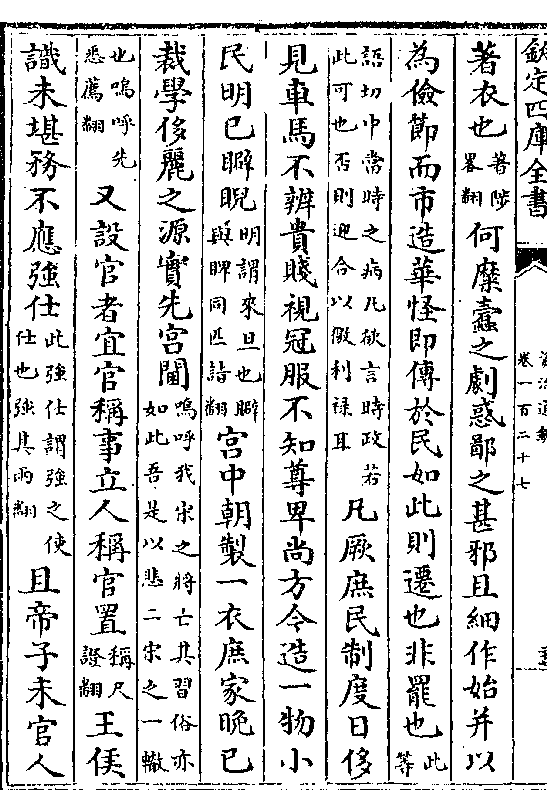 欽定四庫全書
資治通鑑
卷一百二十七
著衣也著陟畧翻何糜蠧之劇惑鄙之甚邪且細作始并以
為儉節而市造華怪即傳於民如此則遷也非罷也此等
語切中當時之病凡欲言時政若此可也否則迎合以徼利祿耳凡厥庶民制度日侈
見車馬不辨貴賤視冠服不知尊卑尚方今造一物小
民明已睥睨明謂來旦也睥與睥同匹詣翻宫中朝製一衣庶家晚已
裁學侈麗之源實先宫閫嗚呼我宋之將亡其習俗亦如此吾是以悲二宋之一轍
也嗚呼先悉薦翻又設官者宜官稱事立人稱官置稱尺證翻王侯
識未堪務不應強仕此強仕謂強之使仕也強其兩翻且帝子未官人